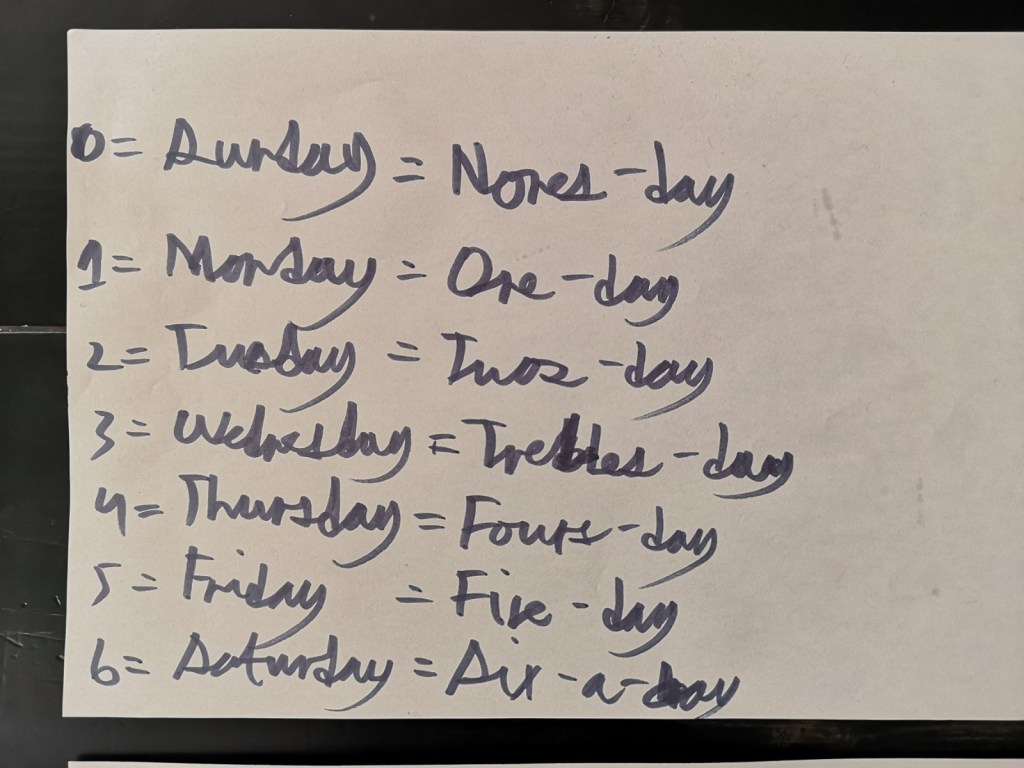 0= Sunday = Nones-day
1= Monday = One-day
2= Tuesday = Twos-day
3= Wednesday = Trebles-day
4= Thursday = Fours-day
5= Friday = Five-day
6= Saturday = Six-a-day